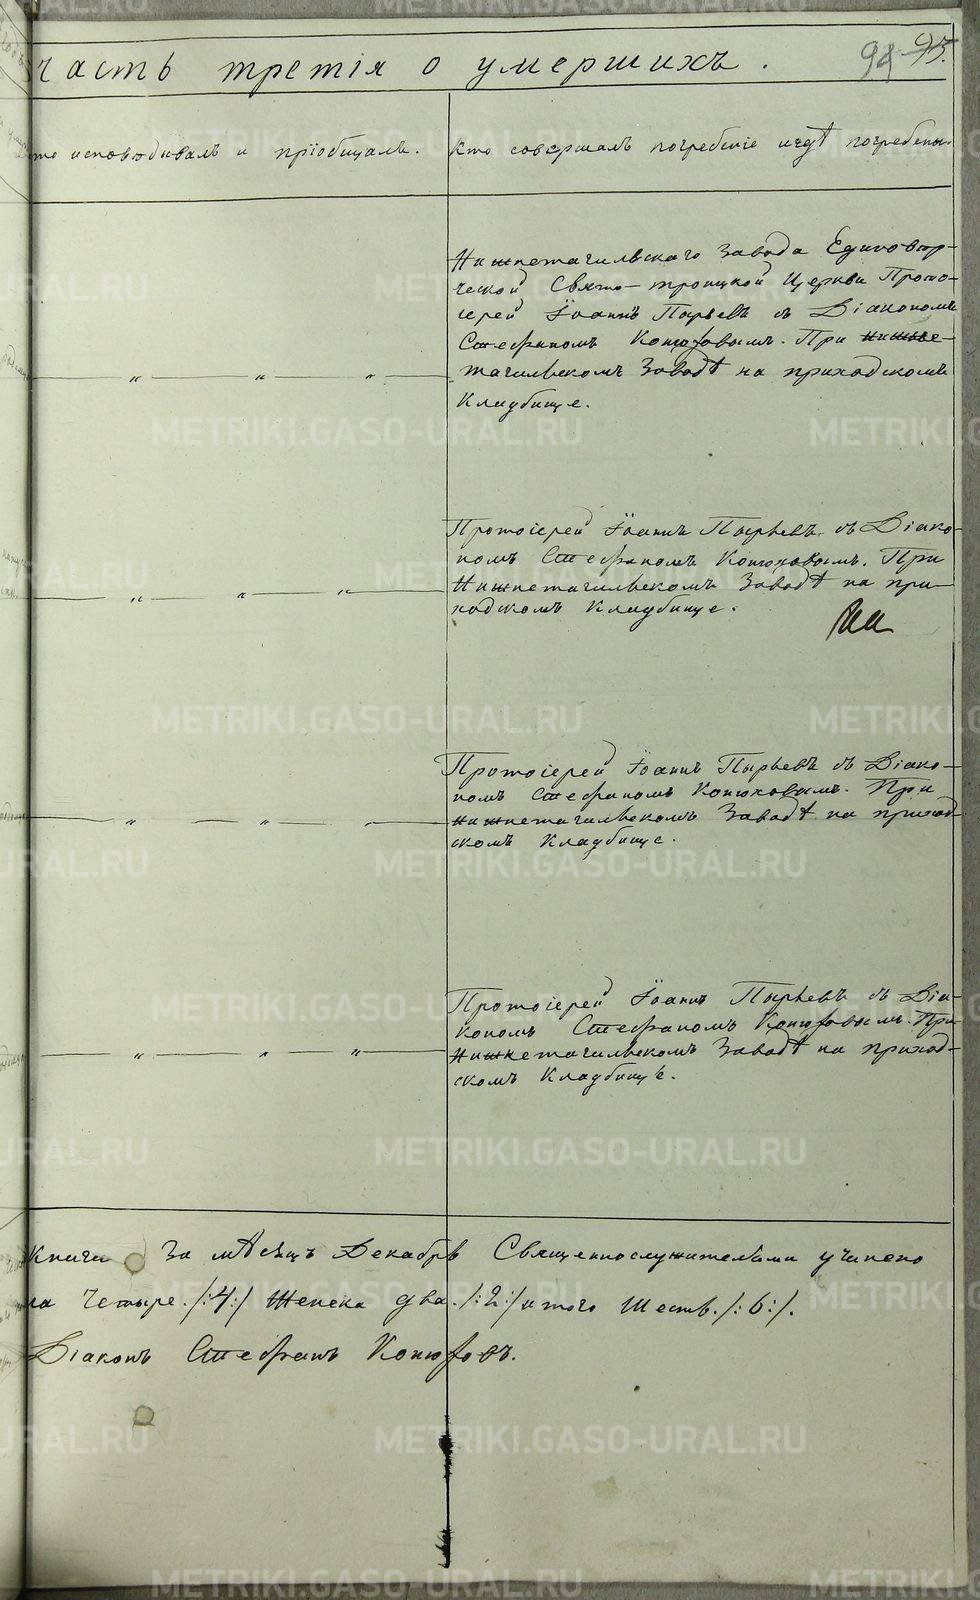 часть третія о умершихъ.
94 95.
кто исповѣдывалъ и пріобщалъ.
Кто совершалъ погребеніе и гдѣ погребены.
Нижнетагильскаго Завода Единовѣр-
ческой Свято-троицкой Церкви Прото-
іерей Іоаннъ Пырьевъ съ Діакономъ
Стефаномъ Конюховымъ. При нижне-
тагильскомъ Заводѣ на приходскомъ
Кладбище.
Протоіерей Іоаннъ Пырьевъ съ Діако-
номъ Стефаномъ Конюховымъ. При
Нижнетагильскомъ Заводѣ на при-
ходскомъ Кладбище.
Протоіерей Іоаннъ Пырьевъ съ Діако-
номъ Стефаномъ Конюховымъ. При
нижнетагильскомъ Заводѣ на приход-
скомъ Кладбище.
Протоіерей Іоаннъ Пырьевъ съ Діа-
кономъ Стефаномъ Конюховымъ. При
Нижнетагильскомъ Заводѣ на приход-
скомъ Кладбище.
Книги За мѣсяцъ Декабрь Священнослужителями учинено
Четыре ./:4:/ Женска два ./:2:/ итого Шесть ./:6:/.
Діаконъ Стефанъ Конюховъ.
METRIKI.GASO-URAL.RU